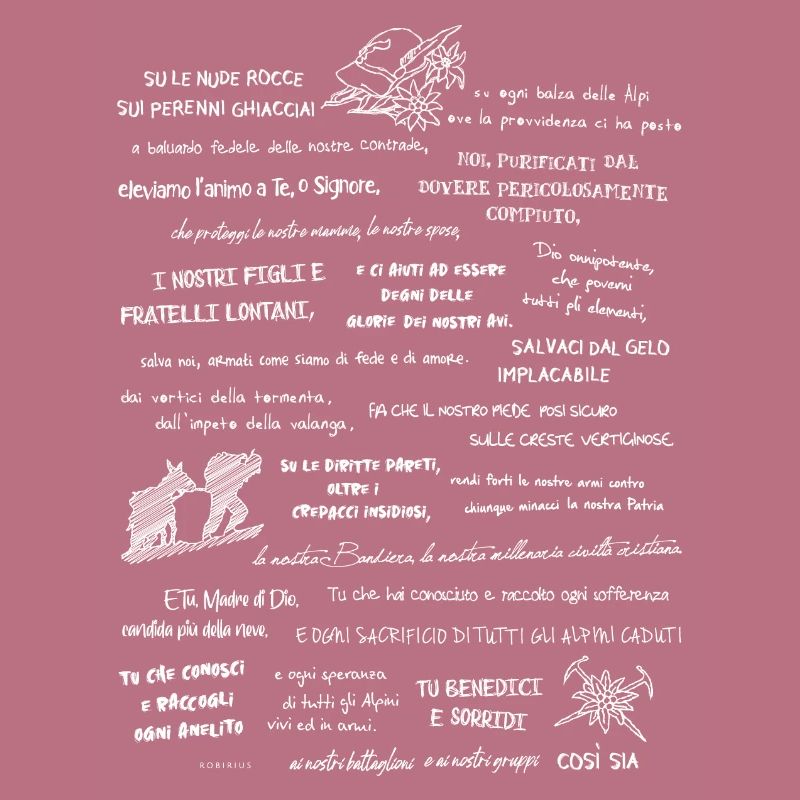 SU LE NUDE ROCCE
SUI PERENNI GHIACCIAI
su ogni balza delle Alpi
ove la provvidenza ci ha posto
a baluardo fedele delle nostre contrade,
NOI, PURIFICATI DAL
DOVERE PERICOLOSAMENTE
COMPIUTO,
eleviamo l'animo a Te, o Signore,
che proteggi le nostre mamme, le nostre spose,
I NOSTRI FIGLI E
FRATELLI LONTANI,
E CI AIUTI AD ESSERE
DEGNI DELLE
GLORIE DEI NOSTRI AVI.
Dio onnipotente,
che governi
tutti gli elementi,
salva noi, armati come siamo di fede e di amore.
SALVACI DAL GELO
IMPLACABILE
dai vortici della tormenta,
dall'impeto della valanga,
FA CHE IL NOSTRO PIEDE POSI SICURO
SULLE CRESTE VERTIGINOSE
SU LE DIRITTE PARETI,
OLTRE I
CREPACCI INSIDIOSI,
rendi forti le nostre armi contro
chiunque minacci la nostra Patria
la nostra Bandiera, la nostra millenaria civiltà cristiana.
E Tu, Madre di Dio,
candida più della neve,
Tu che hai conosciuto e raccolto ogni sofferenza
E OGNI SACRIFICIO DI TUTTI GLI ALPINI CADUTI
TU CHE CONOSCI
E RACCOGLI
OGNI ANELITO
e ogni speranza
di tutti gli Alpini
vivi ed in armi.
TU BENEDICI
E SORRIDI
ai nostri battaglioni e ai nostri gruppi
COSÌ SIA
ROBIRIUS